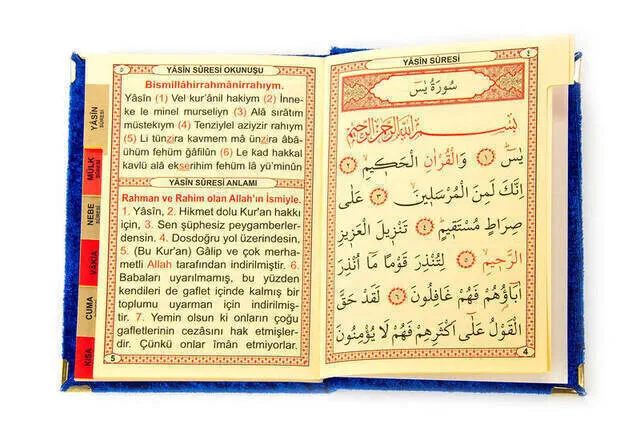 YÂSÎN SÛRESİ OKUNUŞU
Bismillâhirrahmânirrahıym.
Yâsîn (1) Vel kur'ânil hakiym (2) İnne-
ke le minel murseliyn (3) Alâ sıratım
müstekıym (4) Tenziylel aziyzir rahıym
(5) Li tünzira kavmem mâ ünzira âbâ-
ühüm fehüm ğâfilûn (6) Le kad hakkal
kavlü alâ ekserihim fehüm lâ yü'minûn
YÂSÎN SÛRESİ ANLAMI
Rahman ve Rahim olan Allah'ın İsmiyle.
1. Yâsîn, 2. Hikmet dolu Kur'an hakkı
için, 3. Sen şüphesiz peygamberler-
densin. 4. Dosdoğru yol üzerindesin,
5. (Bu Kur'an) Gâlip ve çok merha-
metli Allah tarafından indirilmiştir. 6.
Babaları uyarılmamış, bu yüzden
kendileri de gaflet içinde kalmış bir
toplumu uyarman için indirilmiş-
tir. 7. Yemin olsun ki onların çoğu
gafletlerinin cezasını hak etmişler-
dir. Çünkü onlar îmân etmiyorlar.
5
YÂSÎN SÛRESİ
MÜLK SÛRESİ
NEBE SÛRESİ
VÂKIA
CUMA
KISA
YÂSÎN SÛRESİ
٤
سُورَةُ يٰسٓ
بِسْمِ اللّٰهِ الرَّحْمٰنِ الرَّحِيمِ
يٰسٓ ﴿١﴾ وَالْقُرْاٰنِ الْحَكِيمِ ﴿٢﴾
اِنَّكَ لَمِنَ الْمُرْسَلِينَ ﴿٣﴾ عَلٰى
صِرَاطٍ مُسْتَقِيمٍ ﴿٤﴾ تَنْزِيلَ الْعَزِيزِ
الرَّحِيمِ ﴿٥﴾ لِتُنْذِرَ قَوْمًا مَٓا اُنْذِرَ
اٰبَٓاؤُهُمْ فَهُمْ غَافِلُونَ ﴿٦﴾ لَقَدْ حَقَّ
الْقَوْلُ عَلٰٓى اَكْثَرِهِمْ فَهُمْ لَا يُؤْمِنُونَ
4